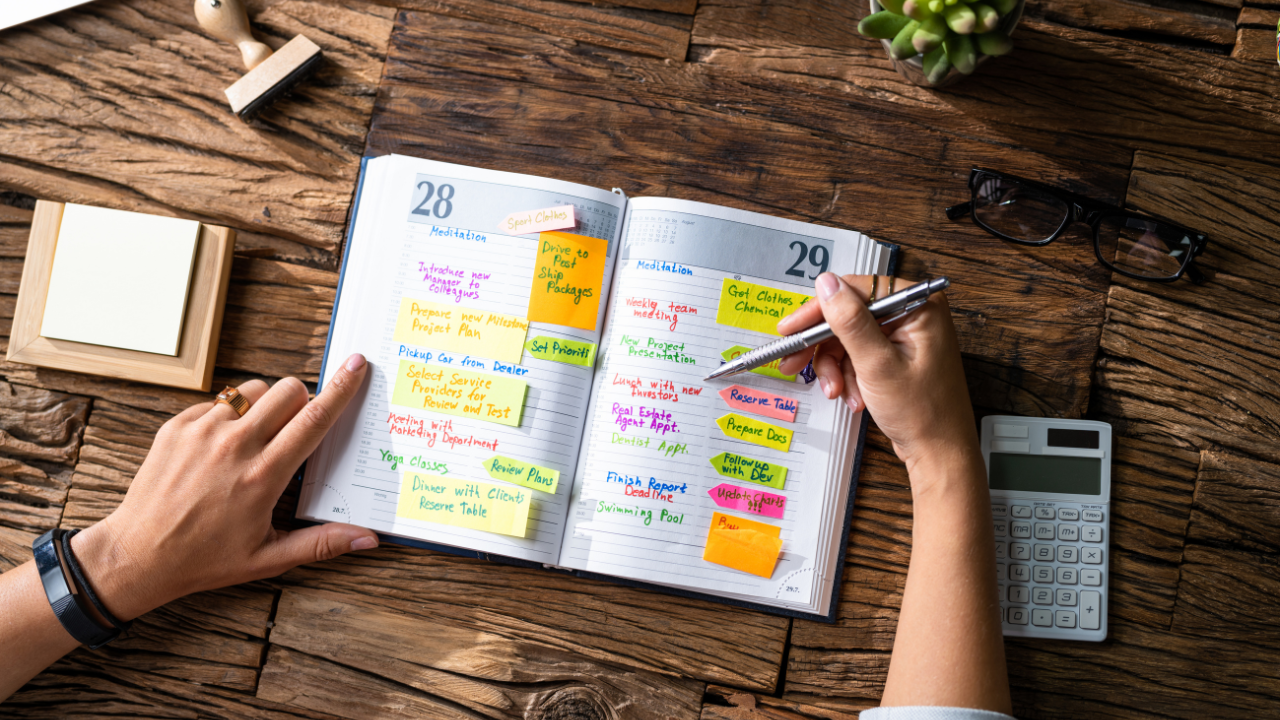 28
Sport Clothes
Meditation
Drive to
Post
Ship
Packages
Introduce new
Manager to
Colleagues
Prepare new Milestone
Project Plan
Set Prioriti
Pickup Car from Dealer
Select Service
Providers for
Review and Test
Meeting with
Marketing Department
Yoga Classes
Review Plans
Dinner with Clients
Reserve Table
28.7.
August
29
Meditation
Get Clothes
Chemical
Weekly team
meeting
New Project
Presentation
Lunch with new
Investors
Reserve Table
Real Estate
Agent Appt.
Prepare Docs
Dentist Appt.
Followup
with Dev
Finish Report
Deadline
Update Charts
!!!
Swimming Pool
29.7.